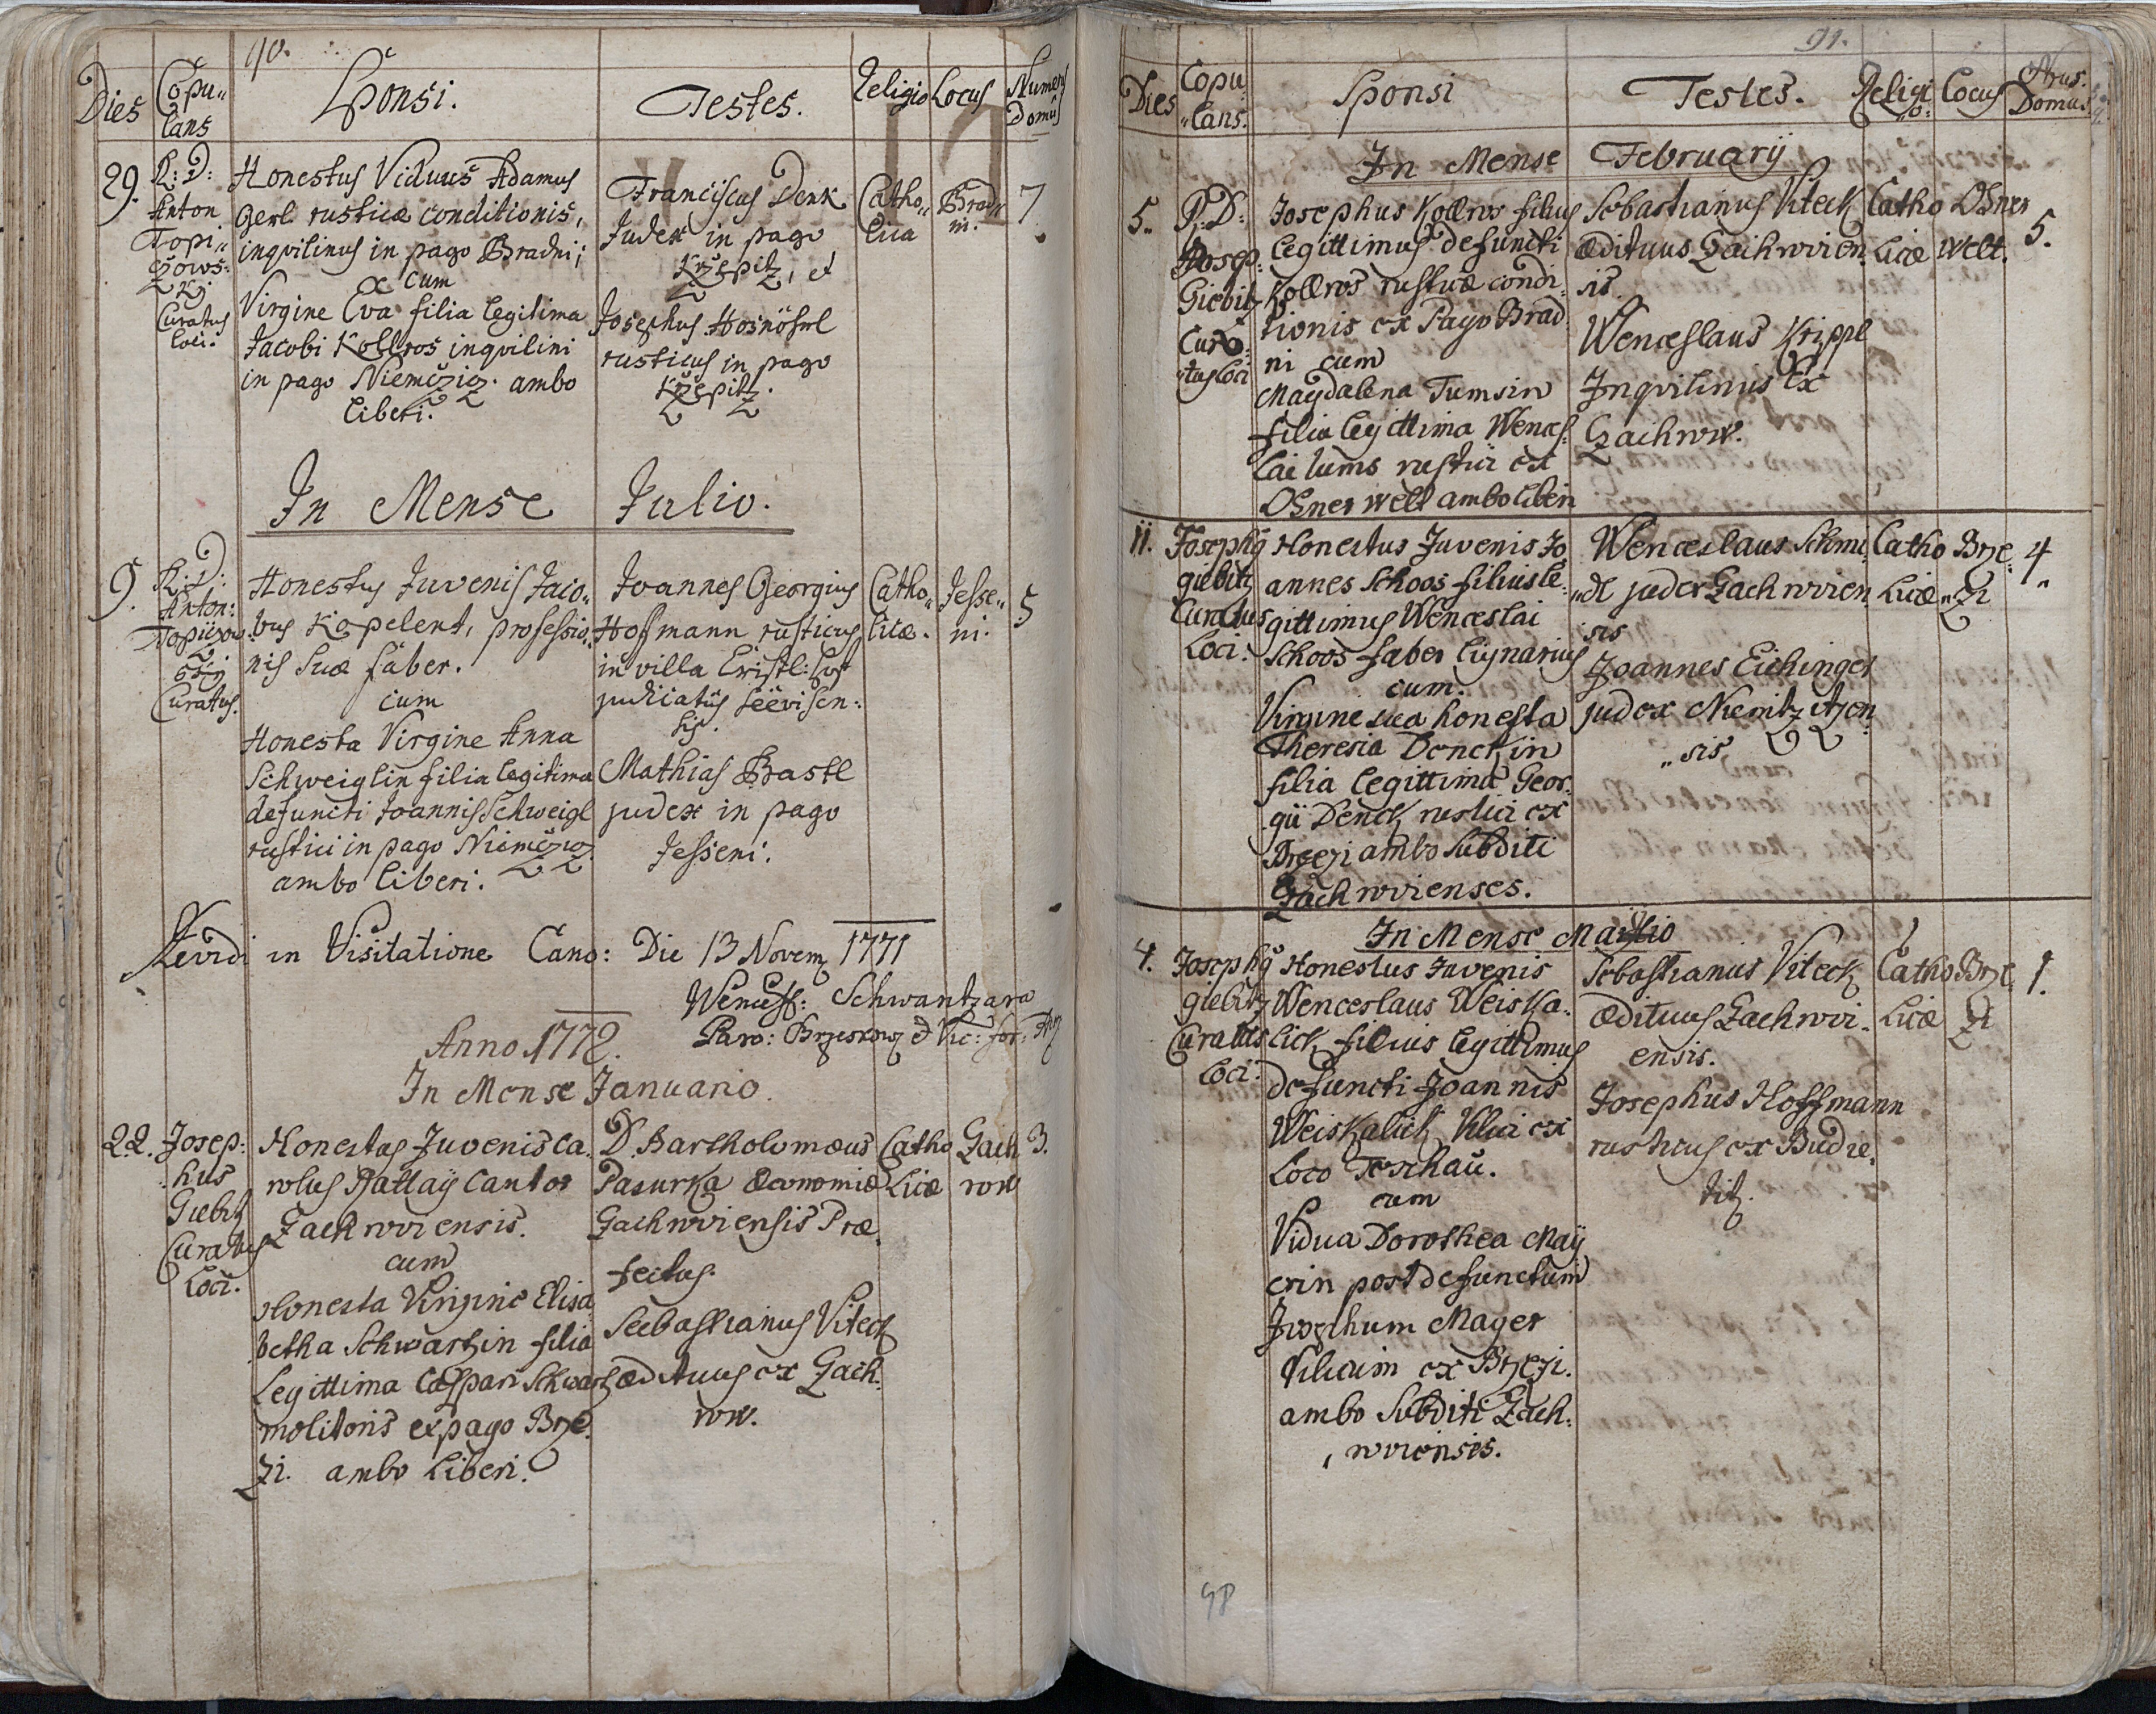 90.
Dies Copu„ lans Sponsi. Testes. Religio Locus Numerus Domus
29. R: D: Anton Topi„ czows: Kj Curatus loci.
Honestus Viduus Adamus
Gerl rusticæ conditionis,
inqvilinus in pago Bradni;
cum
Virgine Eva filia legitima
Jacobi Kollros inqvilini
in pago Niemčziz. ambo
liberi.
Franciscus Denk
Judex in pago
Křžepitz, et
Josephus
rusticus in pago
Křžepitz.
Catho„ lica
Brad„ ni.
7
In Mense Julio.
9. R: D: Anton: Curatus.
Honestus Juvenis Jaco„
bus Kopelent, professio„
nis suæ faber.
cum
Honesta Virgine Anna
Schweiglin filia legitima
defuncti Joannis Schweigl
rustici in pago Niemčziz
ambo liberi.
Joannes Georgius
Hofmann rusticus
in villa
judicatûs Seëvisen:
sis.
Mathias Bastl
judex in pago
Jesseni.
Catho„ licæ.
Jesse„ ni.
5
Revidi in Visitatione Cano: Die 13 Novem 1771
Wencesl: Schwantzara
Paro: Brzeskow & Vic: for:
Anno 1772.
In Mense Januario.
22. Josep: hus Giebitz Curatus Loci.
Honestus Juvenis Ca„
rolus Rattaÿ Cantor
Zachwviensis.
cum
Honesta Virgine Elisa
betha Schwartzin filia
Legittima Caspari Schwartz
molitoris ex pago Brze„
zi. ambo Liberi.
D. Bartholomæus
Pasurka Œconomiæ
Gachwviensis Præ„
fectus.
Seebastianus Viteck
ædituus ex Zach„
ww.
Catho Licæ
Zach ww
3.
91.
Dies Copu „lans. Sponsi Testes. Religi „o: Locus Nrus. Domus.
In Mense Februarij
5. P. D: Josep: Giebitz Cura: „tus Loci
Josephus Kollros filius
legittimus defuncti
Kollros rusticæ condi„
tionis ex Pago Brad
ni cum
Magdalena Tumsin
filia legittima Wences„
lai tums rustici ex
Osner welt ambo liberi
Sebastianus Viteck
ædituus Zachwvien„
sis.
Wenceslaus Krippl
Inqvilinus Ex
Zachww.
Catho Licæ
Osner welt.
5.
11. Josephus giebitz Curatus Loci.
Honestus Juvenis Jo
annes Schoos filius le„
gittimus Wenceslai
Schoos faber lignarius
cum.
Virgine sua honesta
Theresia Denckin
filia legittima Geor„
gii Denck rustici ex
Brzezi ambo Subditi
Zachwvienses.
Wenceslaus Schmi„
„dl judex Zachwvien„
sis
Joannes Eichinger
judex
„sis
Catho Licæ
Brze „zi
4„
In Mense Maio
4. Josephus giebitz Curatus Loci.
Honestus Juvenis
Wenceslaus Weiska„
lick filius legittimus
defuncti Joannis
Weiskalick Vilici ex
Loco Teschau.
cum
Vidua Dorothea Maÿ
erin post defunctum
Josephum Mayer
Vilicum ex Brzezi.
ambo Subditi Zach„
„wviensis.
Sebastianus Viteck
ædituus Zachwvi„
ensis.
Josephus Hoffmann
rusticus ex Budie„
titz.
Catho Licæ
Brze zi
1.
98